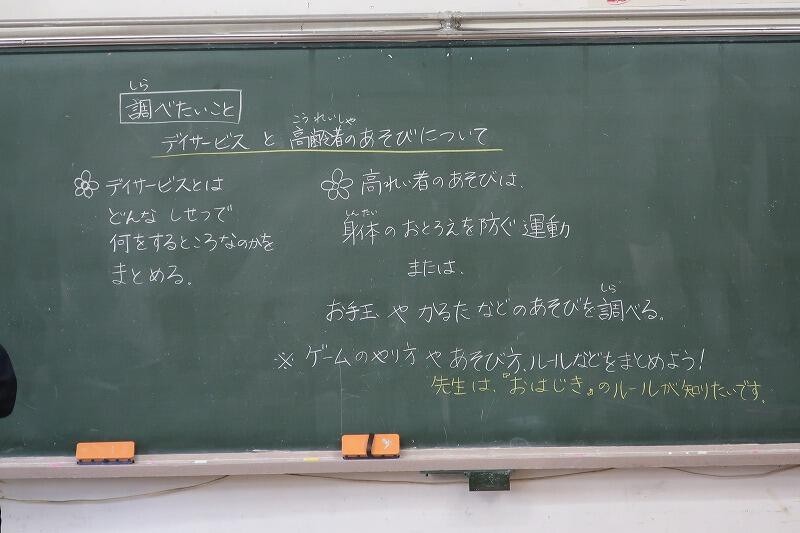 しら
調べたいこと
こうれいしゃ
デイサービスと高齢者のあそびについて
デイサービスとは
どんなしせつで
何をするところなのかを
まとめる。
高れい者のあそびは、
しんたい
身体のおとろえを防ぐ運動
または、
しら
お手玉やかるたなどのあそびを調べる。
※ゲームのやり方やあそび方、ルールなどをまとめよう!
先生は、『おはじき』のルールが知りたいです。